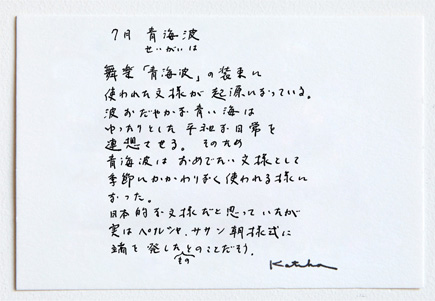 7月 青海波
せいがいは
舞楽「青海波」の装束に
使われた文様が起源になっている。
波おだやかな青い海は
ゆったりとした平和な日常を
連想させる。そのため
青海波はおめでたい文様として
季節にかかわりなく使われる様に
なった。
日本的な文様だと思っていたが
実はペルシャ、ササン朝様式に
端を発したとのことだそう。
その